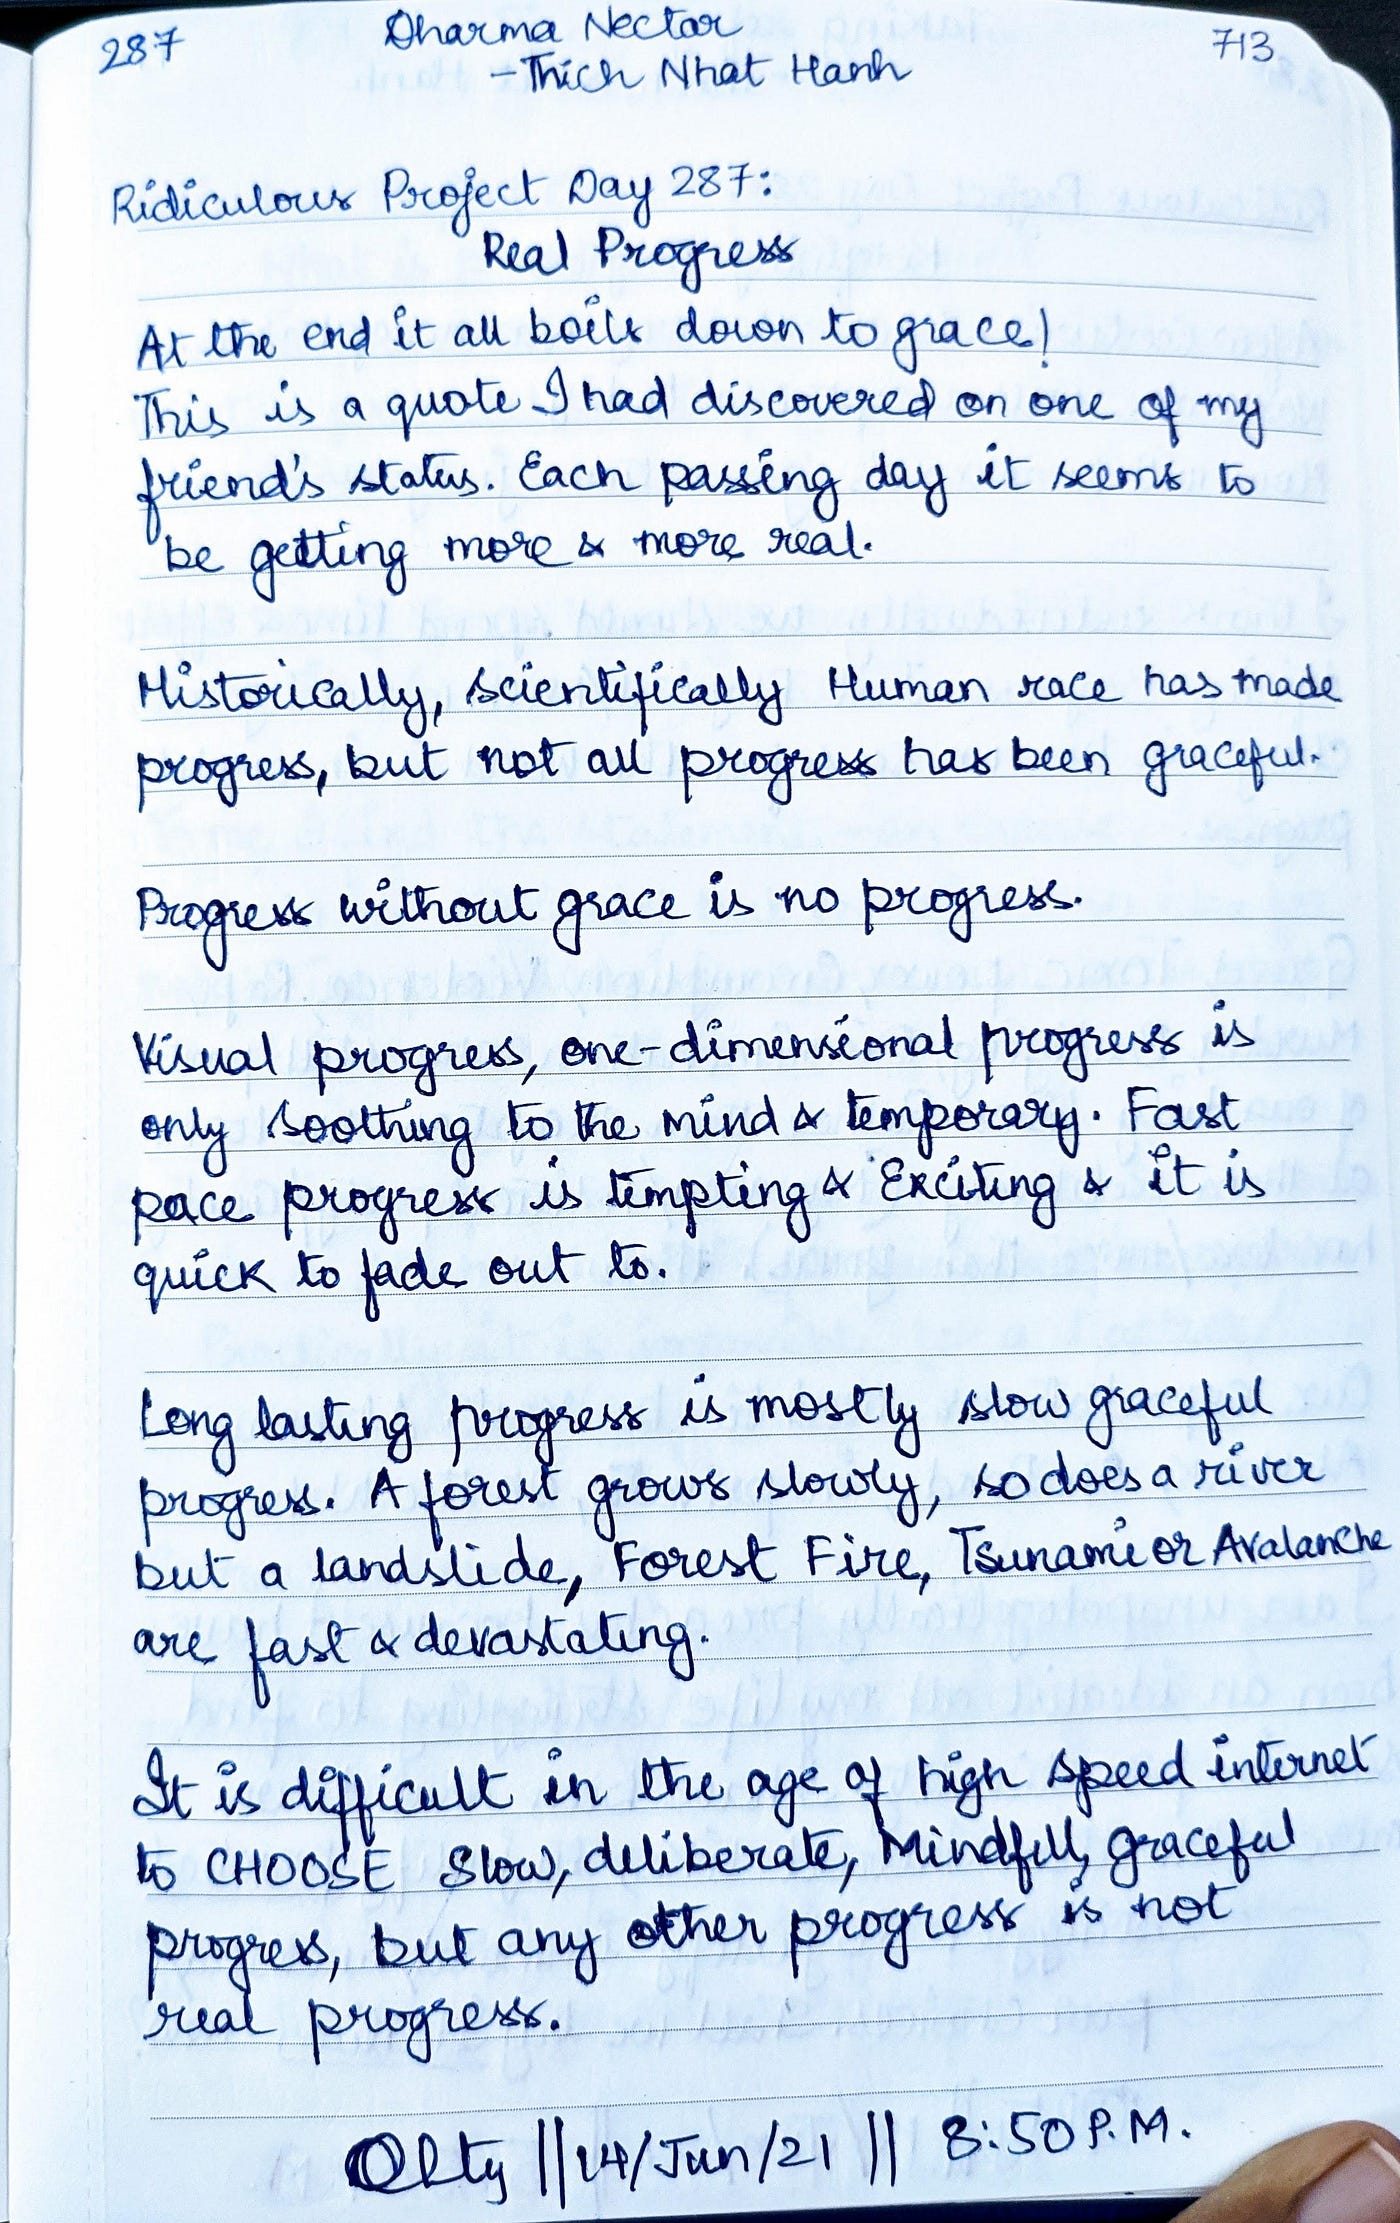 287 Dharma Nectar 713
- Thich Nhat Hanh
Ridiculous Project Day 287:
Real Progress
At the end it all boils down to grace!
This is a quote I had discovered on one of my
friend's status. Each passing day it seems to
be getting more & more real.
Historically, scientifically Human race has made
progress, but not all progress has been graceful.
Progress without grace is no progress.
Visual progress, one-dimensional progress is
only soothing to the mind & temporary. Fast
pace progress is tempting & Exciting & it is
quick to fade out to.
Long lasting progress is mostly slow graceful
progress. A forest grows slowly, so does a river
but a landslide, Forest Fire, Tsunami or Avalanche
are fast & devastating.
It is difficult in the age of high speed internet
to CHOOSE Slow, deliberate, Mindful, graceful
progress, but any other progress is not
real progress.
||14/Jun/21 || 8:50 P.M.